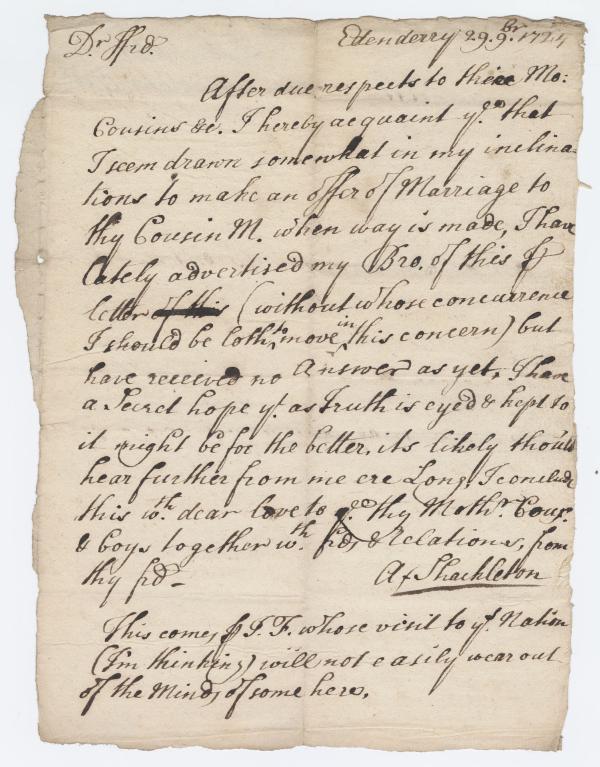 Dr. ffrd. Edenderry 29. 9br. 1724
After due respects to thee Mo:
Cousins &c. I hereby acquaint ye. that
I seem drawn somewhat in my inclina-
tions to make an offer of Marriage to
thy Cousin M. when way is made, I have
lately advertised my Bro. of this p
letter of this (without whose concurrence
I should be loth to move in this concern) but
have received no Answer as yet, I have
a Secret hope yt. as Truth is eyed & kept to
it might be for the better, its likely thou'd
hear further from me ere Long, I conclude
this wth. dear love to thy Mothr. Cous.
& boys together wth. frds, & Relations, from
thy frd-
A Shackleton
This comes p J. F. whose visit to yt. Nation
(I'm thinking) will not easily wear out
of the Minds of some here.